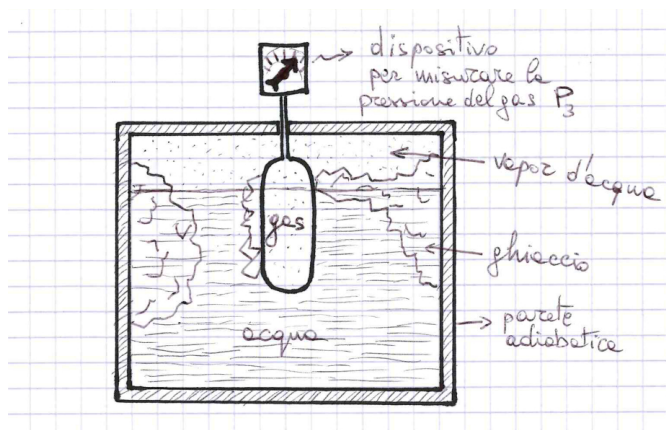 dispositivo
per misurare la
pressione del gas P3
vapor d'acqua
gas
ghiaccio
acqua
parete
adiabatica